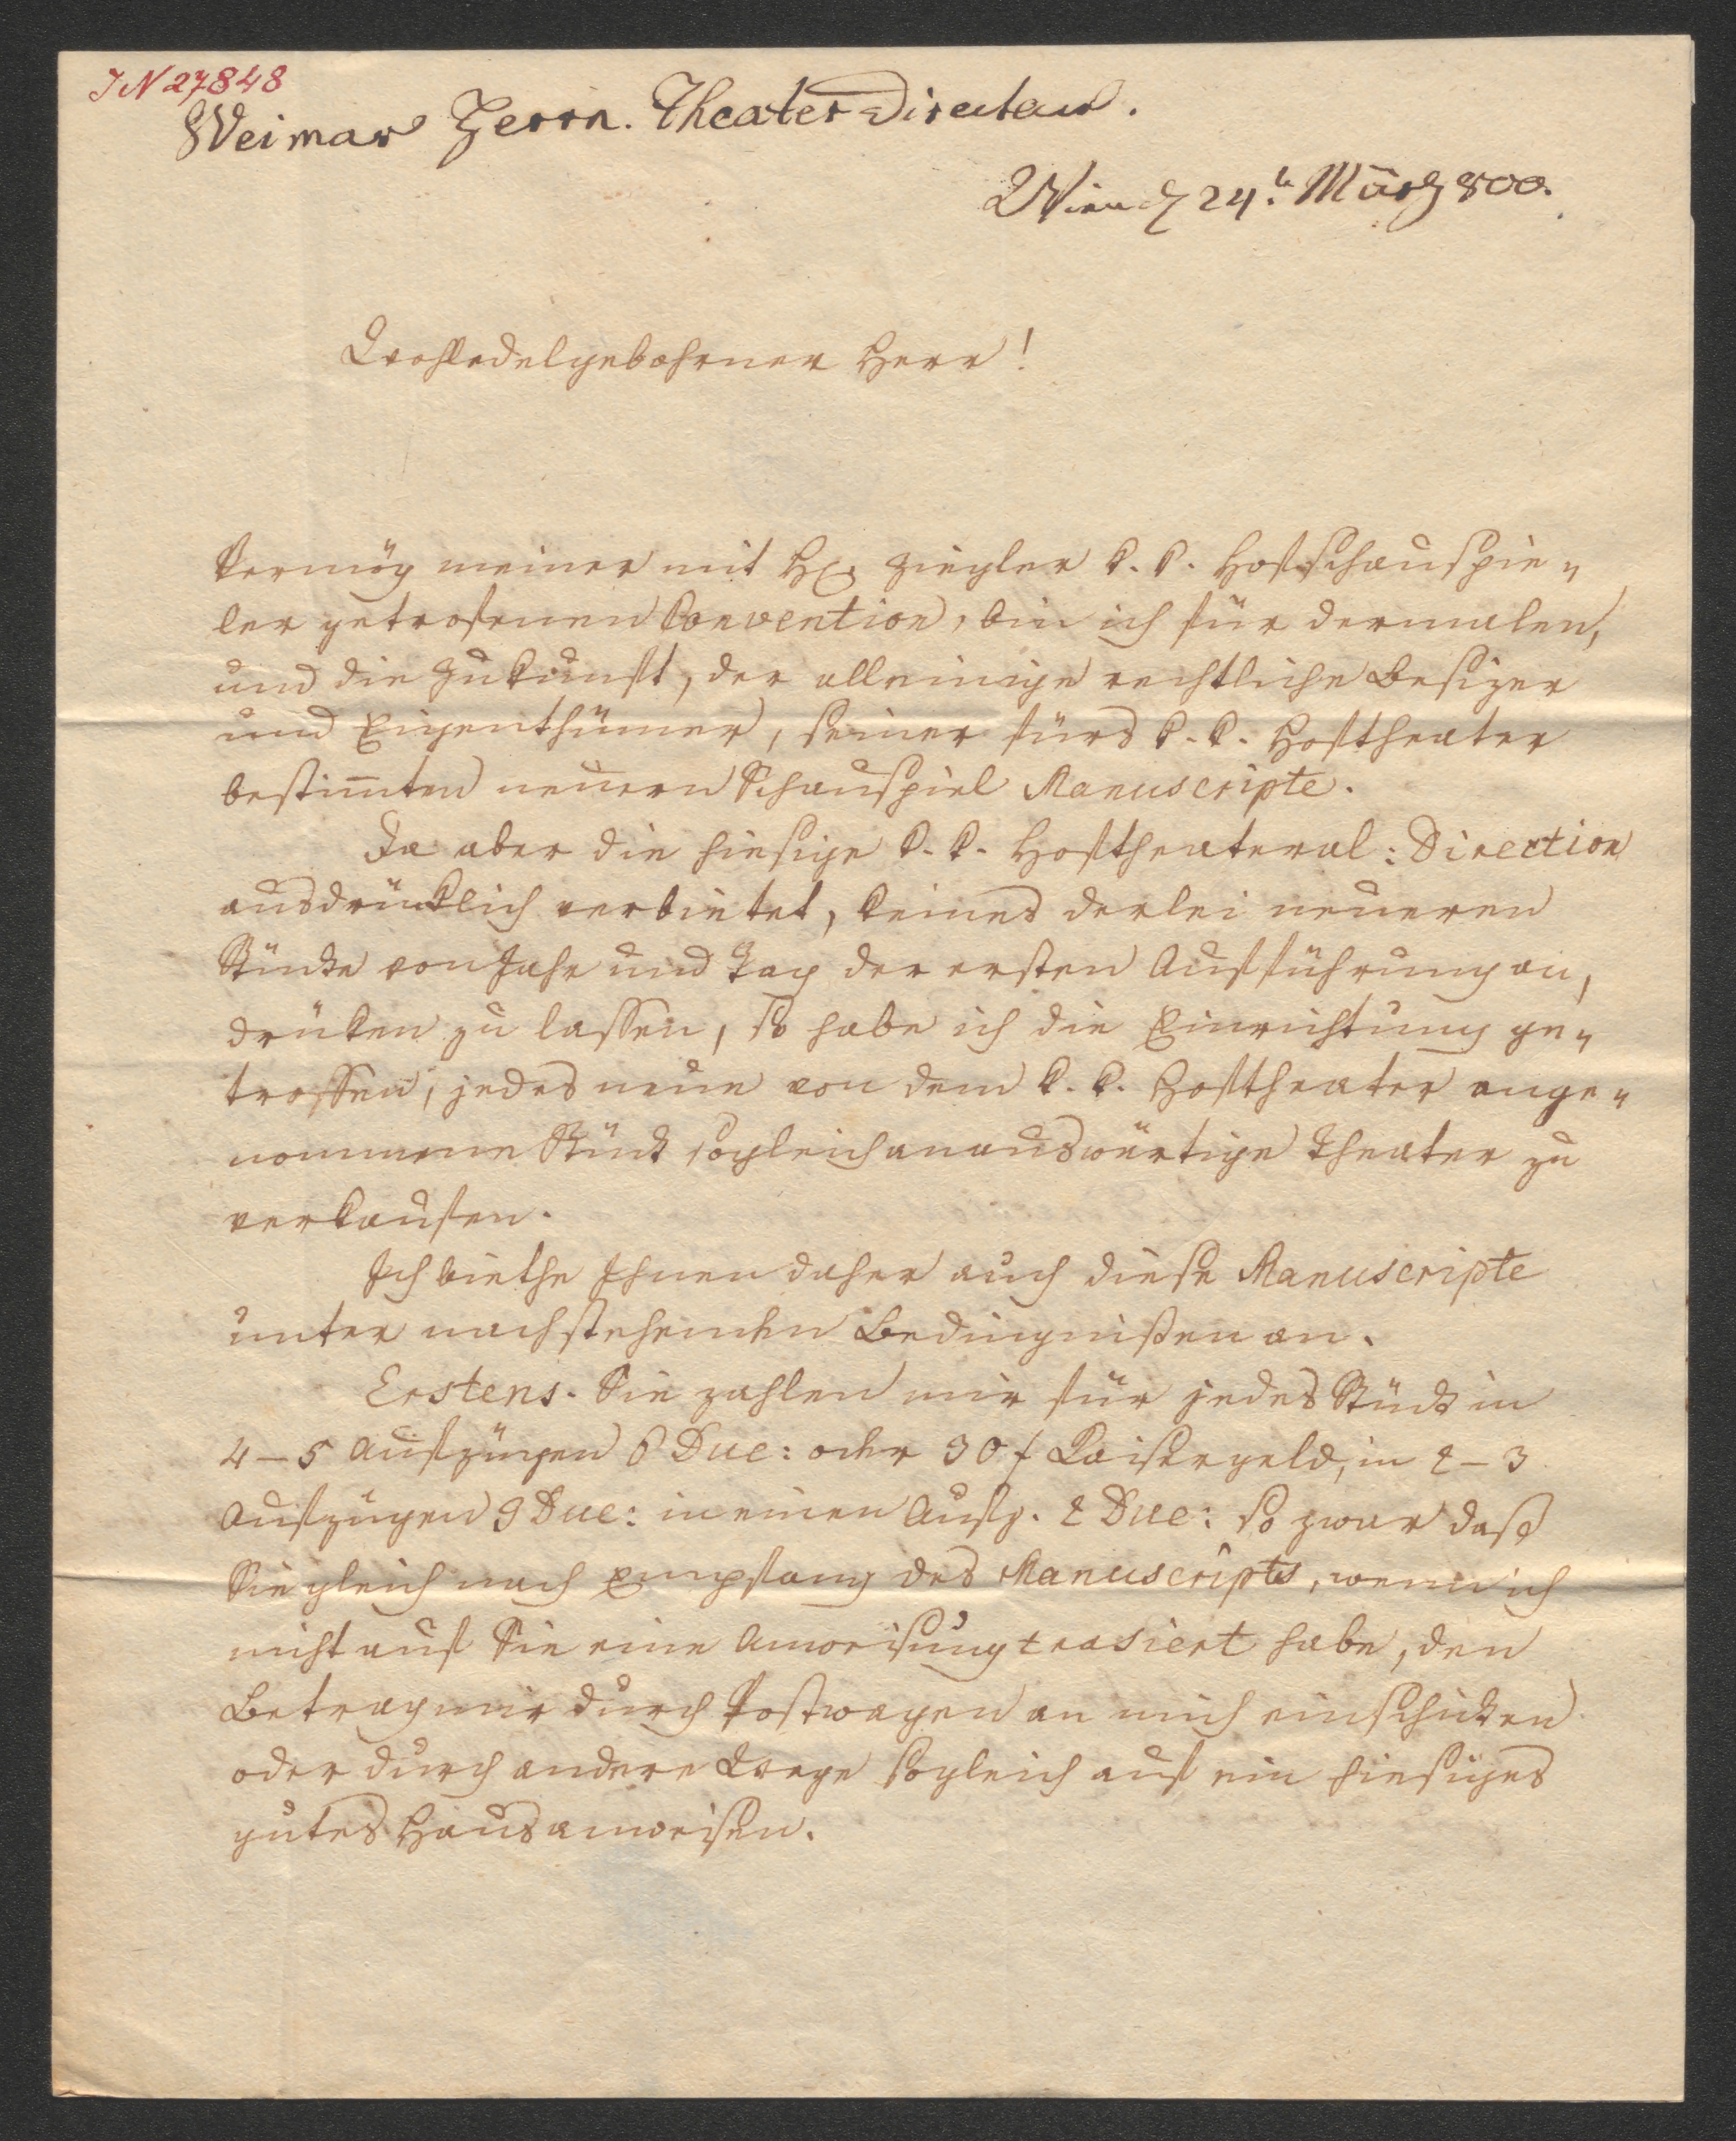 IN 27848
Weimar Herrn. Theater Directeur.
Wien d 24t März 800.
Wohledelgebohrner Herr!
Vermög meiner mit H. Ziegler k. k. Hofschauspie„
ler getrofenen Convention, bin ich für dermalen,
und die Zukunft, der alleinige rechtliche Besizer
und Eigenthümer, seiner fürs k. k. Hoftheater
bestim̅ten neuern Schauspiel Manuscripte.
Da aber die hiesige k. k. Hoftheateral: Direction
ausdrücklich verbietet, keines derlei neueren
Stücke von Jahr und Tag der ersten Aufführung an,
drüken zu lassen, so habe ich die Einrichtung ge„
troffen, jedes neue von dem k. k. Hoftheater ange„
nommene Stück sogleich an auswärtige Theater zu
verkaufen.
Ich biethe Ihnen daher auch diese Manuscripte
unter nachstehenden Bedingnißen an.
Erstens. Sie zahlen mir für jedes Stück in
4–5 Aufzügen 6 Duc: oder 30 f Kaisergeld, in 2–3
Aufzügen 3 Duc: in einen Aufz. 2 Duc: so zwar daß
Sie gleich nach Empfang des Manuscripts, wenn ich
nicht auf Sie eine Anweisung trasiert habe, den
Betrag mir durch Postwagen an mich einschicken
oder durch andere Wege sogleich auf ein hiesiges
gutes Haus anweisen.